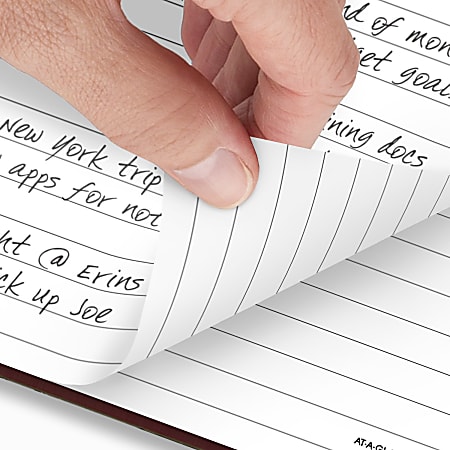 d of mon
get goal
ining docs
New York trip
apps for not
ht @ Erins
ck up Joe
AT-A-GL